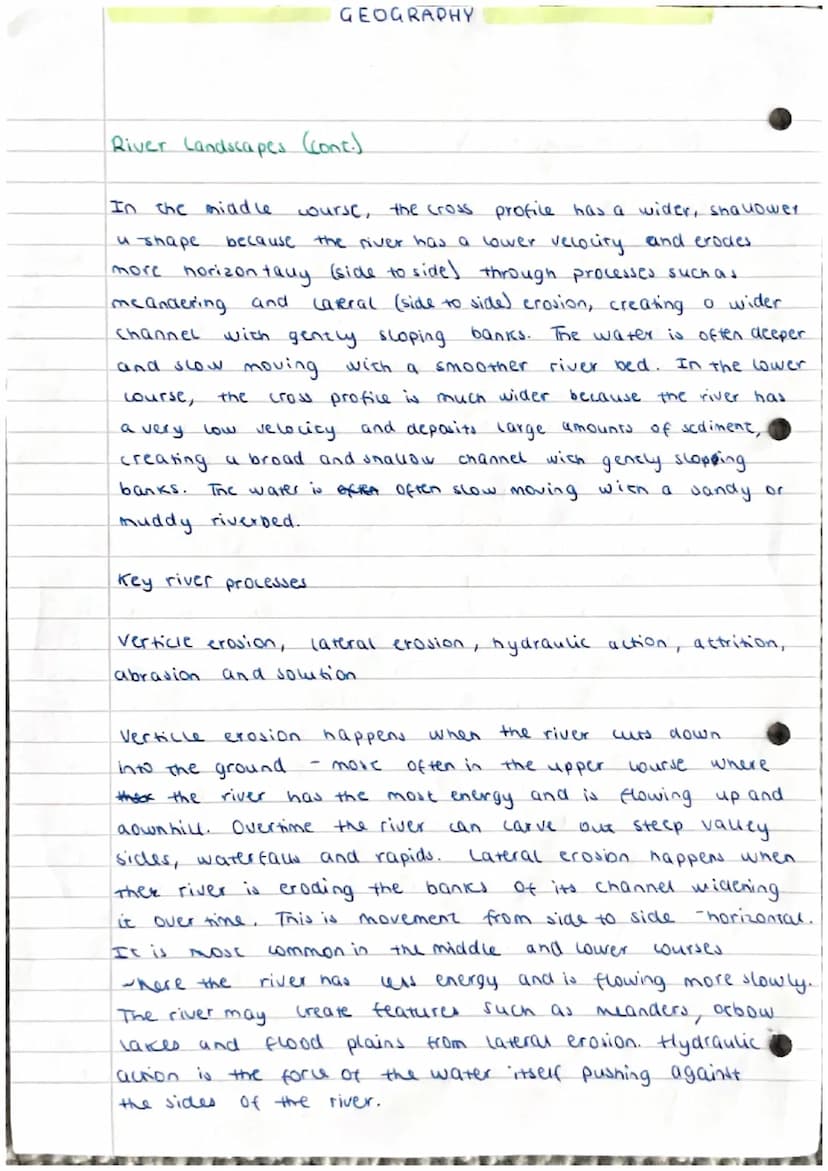 GEOGRAPHY
River Landscapes (cont.)
In the middle course, the cross profile has a wider, shallower
u-shape because the river has a lower velocity and erodes
more horizontally (side to side) through processes such as
meandering and lateral (side to side) erosion, creating a wider
channel with gently sloping banks. The water is often deeper
and slow moving with a smoother river bed. In the lower
course, the cross profile is much wider because the river has
a very low velocity and deposits large amounts of sediment,
creating a broad and shallow channel with gently slopping
banks. The water is often slow moving with a sandy or
muddy riverbed.
Key river processes
Verticle erosion, lateral erosion, hydraulic action, attrition,
abrasion and solution
Verticle erosion happens when the river cuts down
into the ground - most often in the upper course where
the river has the most energy and is flowing up and
downhill. Overtime the river can carve out steep valley
sides, waterfalls and rapids. Lateral erosion happens when
ther river is eroding the banks of its channel widening
it over time. This is movement from side to side -horizontal.
It is most common in the middle and lower courses
where the river has less energy and is flowing more slowly.
The river may create features such as meanders, oxbow
lakes and flood plains from lateral erosion. Hydraulic
action is the force of the water itself pushing against
the sides of the river.